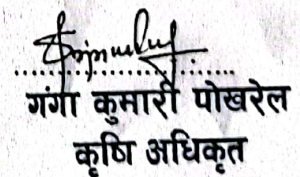 गंगा कुमारी पोखरेल
कृषि अधिकृत